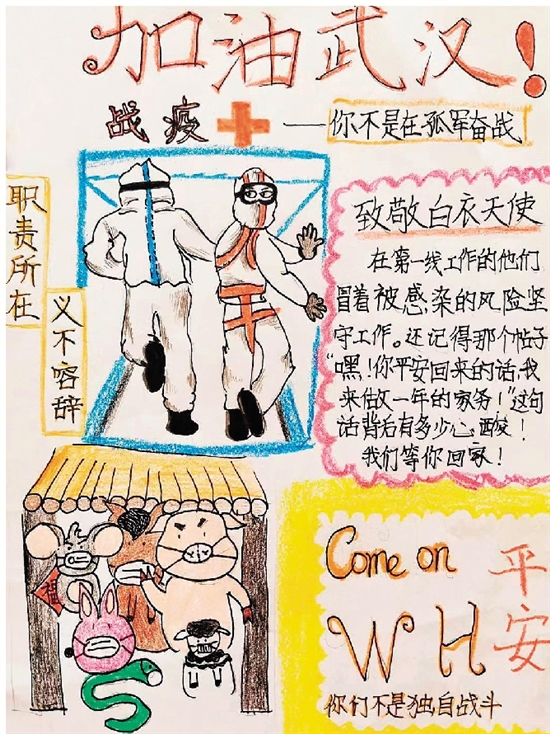 加油武汉!
战疫
——你不是在孤军奋战
职责所在
义不容辞
致敬白衣天使
在第一线工作的他们
冒着被感染的风险坚
守工作。还记得那个帖子
“嘿!你平安回来的话,我
来做一年的家务!”这句
话背后有多少心酸!
我们等你回家!
Come on
WH
平安
你们不是独自战斗